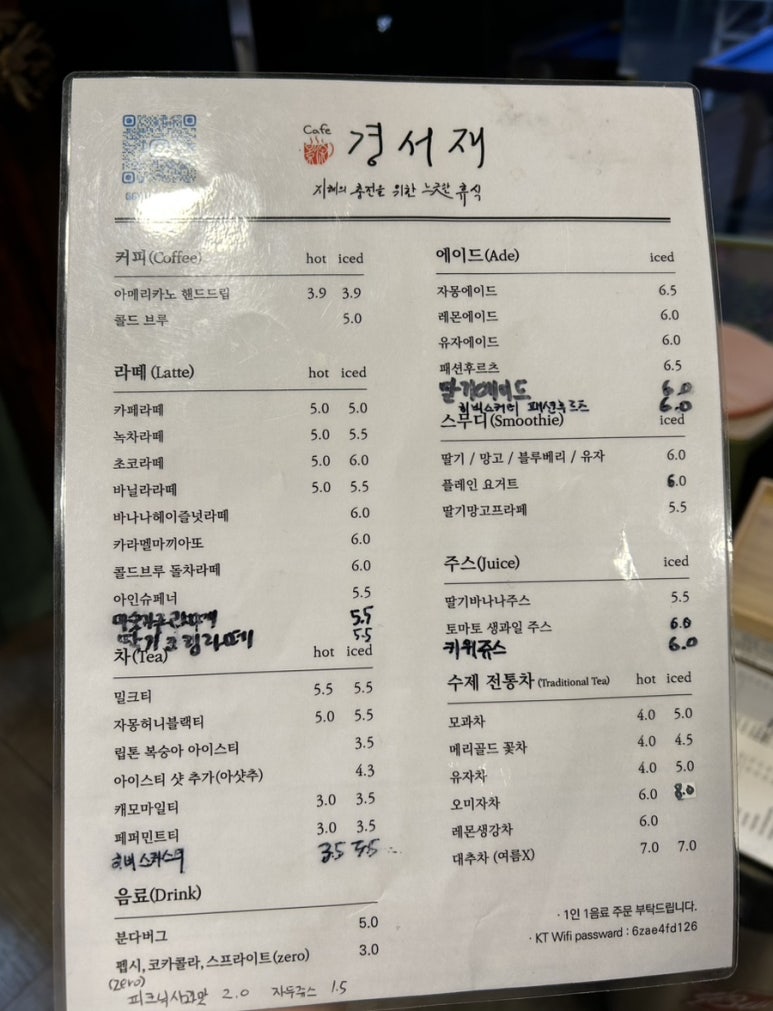 Cafe 경서재
지혜의 충전을 위한 느긋한 휴식
커피(Coffee) hot iced
아메리카노 핸드드립 3.9 3.9
콜드 브루 5.0
라떼(Latte) hot iced
카페라떼 5.0 5.0
녹차라떼 5.0 5.5
초코라떼 5.0 6.0
바닐라라떼 5.0 5.5
바나나헤이즐넛라떼 6.0
카라멜마끼아또 6.0
콜드브루 돌차라떼 6.0
아인슈페너 5.5
5.5
딸기크림라떼 5.5
차(Tea) hot iced
밀크티 5.5 5.5
자몽허니블랙티 5.0 5.5
립톤 복숭아 아이스티 3.5
아이스티 샷 추가(아샷추) 4.3
캐모마일티 3.0 3.5
페퍼민트티 3.0 3.5
3.5
음료(Drink)
분다버그 5.0
펩시,코카콜라,스프라이트(zero) 3.0
(zero)
피크닉사과맛 2.0 자두쥬스 1.5
에이드(Ade) iced
자몽에이드 6.5
레몬에이드 6.0
유자에이드 6.0
패션후르츠 6.5
딸기에이드 6.0
히비스커스 패션후르츠 6.0
스무디(Smoothie) iced
딸기 / 망고 / 블루베리 / 유자 6.0
플레인 요거트 6.0
딸기망고프라페 5.5
주스(Juice) iced
딸기바나나주스 5.5
토마토 생과일 주스 6.0
키위쥬스 6.0
수제 전통차(Traditional Tea) hot iced
모과차 4.0 5.0
메리골드 꽃차 4.0 4.5
유자차 4.0 5.0
오미자차 6.0 8.0
레몬생강차 6.0
대추차 (여름X) 7.0 7.0
· 1인 1음료 주문 부탁드립니다.
· KT Wifi passward : 6zae4fd126